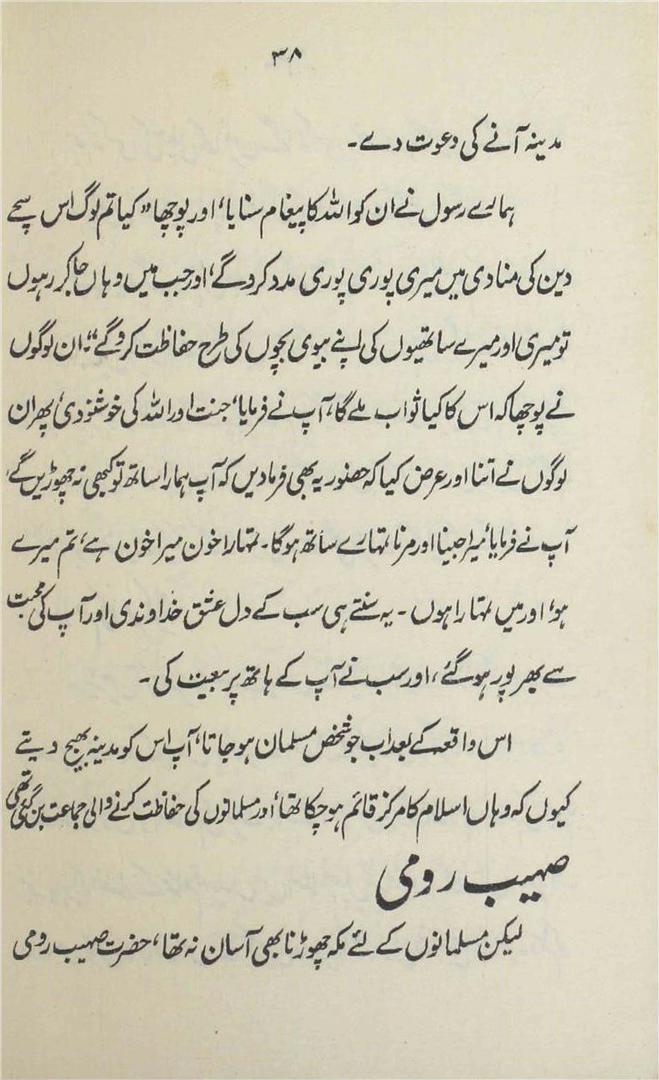 ۳۸
مدینہ آنے کی دعوت دے۔
ہمارے رسول نے ان کو اللہ کا پیغام سنایا، اور پوچھا "کیا تم لوگ اس سچے
دین کی منادی میں میری پوری پوری مدد کرو گے، اور جب میں وہاں جا کر رہوں
تو میری اور میرے ساتھیوں کی اپنے بیوی بچوں کی طرح حفاظت کرو گے"؛ ان لوگوں
نے پوچھا کہ اس کا کیا ثواب ملے گا، آپ نے فرمایا، جنت اور اللہ کی خوشنودی، پھر ان
لوگوں نے اتنا اور عرض کیا کہ حضور یہ بھی فرمادیں کہ آپ ہمارا ساتھ تو کبھی نہ چھوڑیں گے،
آپ نے فرمایا، میرا جینا اور مرنا تمہارے ساتھ ہوگا۔ تمہارا خون میرا خون ہے، تم میرے
ہو، اور میں تمہارا ہوں ۔ یہ سنتے ہی سب کے دل عشق خداوندی اور آپ کی محبت
سے بھر پور ہو گئے، اور سب نے آپ کے ہاتھ پر بیعت کی۔
اس واقعہ کے بعد اب جو شخص مسلمان ہو جاتا، آپ اس کو مدینہ بھیج دیتے
کیوں کہ وہاں اسلام کا مرکز قائم ہو چکا تھا، اور مسلمانوں کی حفاظت کرنے والی جماعت بن گئی تھی
صہیب رومی
لیکن مسلمانوں کے لئے مکہ چھوڑنا بھی آسان نہ تھا، حضرت صہیب رومی